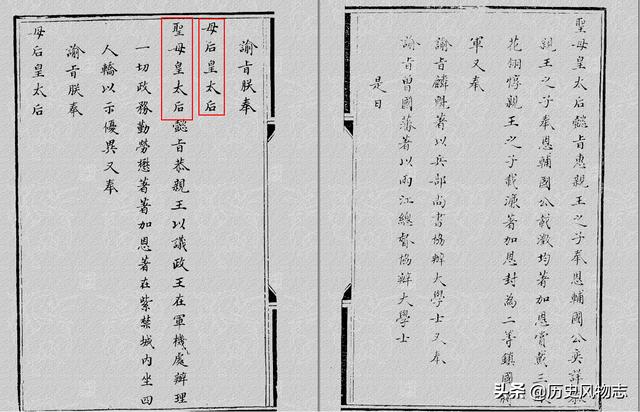 諭旨朕奉
母后皇太后
聖母皇太后懿旨恭親王以議政王在軍機處辦理
一切政務勤勞懋著著加恩著在紫禁城內坐四
人轎以示優異又奉
諭旨朕奉
母后皇太后
聖母皇太后懿旨惠親王之子奉恩輔國公奕詳
親王之子奉恩輔國公載澂均著加恩賞戴三
花翎惇親王之子載濂著加恩封為二等鎮國
軍又奉
諭旨麟魁著以兵部尚書協辦大學士又奉
諭旨曾國藩著以兩江總督協辦大學士
是日
头条 @历史风物志